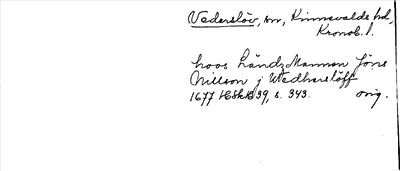 Vederslöv, sn, Kinnevalds hd,
Kronob. l.
hoos Ländz Mannen Jöns
Nillson j Wedherslöff
1677 HSH 39, s. 343. orig.